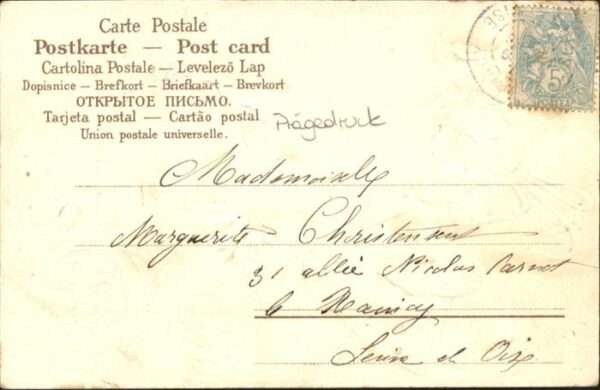 Carte Postale
Postkarte — Post card
Cartolina Postale — Levelező Lap
Dopisnice — Brefkort — Briefkaart — Brevkort
ОТКРЫТОЕ ПИСЬМО.
Tarjeta postal — Cartão postal
Union postale universelle.
Prägedruck
5
Mademoiselle
Marguerite
31 allée Nicolas Carnot
le Raincy
Seine et Oise